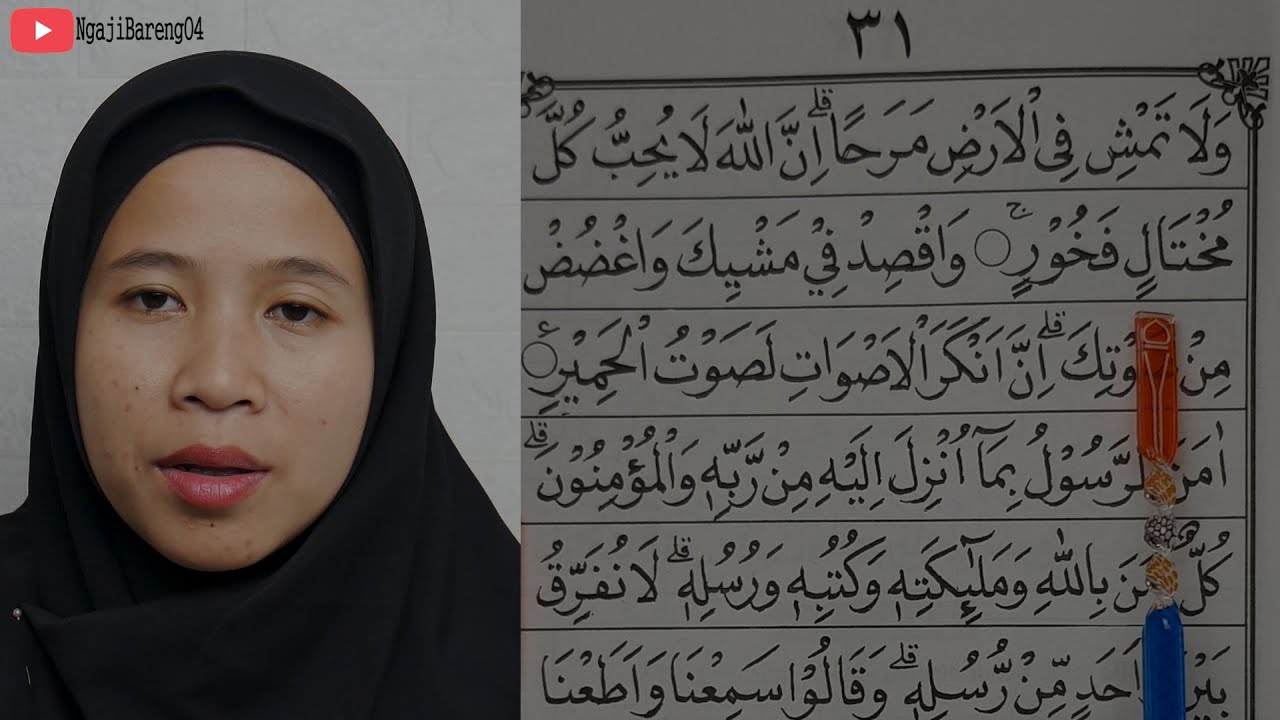 NgajiBareng04
٣١
وَلَا تَمْشِ فِى الْاَرْضِ مَرَحًا ۗ اِنَّ اللّٰهَ لَا يُحِبُّ كُلَّ
مُخْتَالٍ فَخُوْرٍ ۚ ○ وَاقْصِدْ فِيْ مَشْيِكَ وَاغْضُضْ
مِنْ وْتِكَ ۗ اِنَّ اَنْكَرَ الْاَصْوَاتِ لَصَوْتُ الْحَمِيْرِ ○ ࣖ
اٰمَنَ لرَّسُوْلُ بِمَآ اُنْزِلَ اِلَيْهِ مِنْ رَّبِّهٖ وَالْمُؤْمِنُوْنَ ۗ
كُلٌّ مَنَ بِاللّٰهِ وَمَلٰۤىِٕكَتِهٖ وَكُتُبِهٖ وَرُسُلِهٖ ۗ لَا نُفَرِّقُ
بَيْنَ اَحَدٍ مِّنْ رُّسُلِهٖ ۗ وَقَالُوْا سَمِعْنَا وَاَطَعْنَا